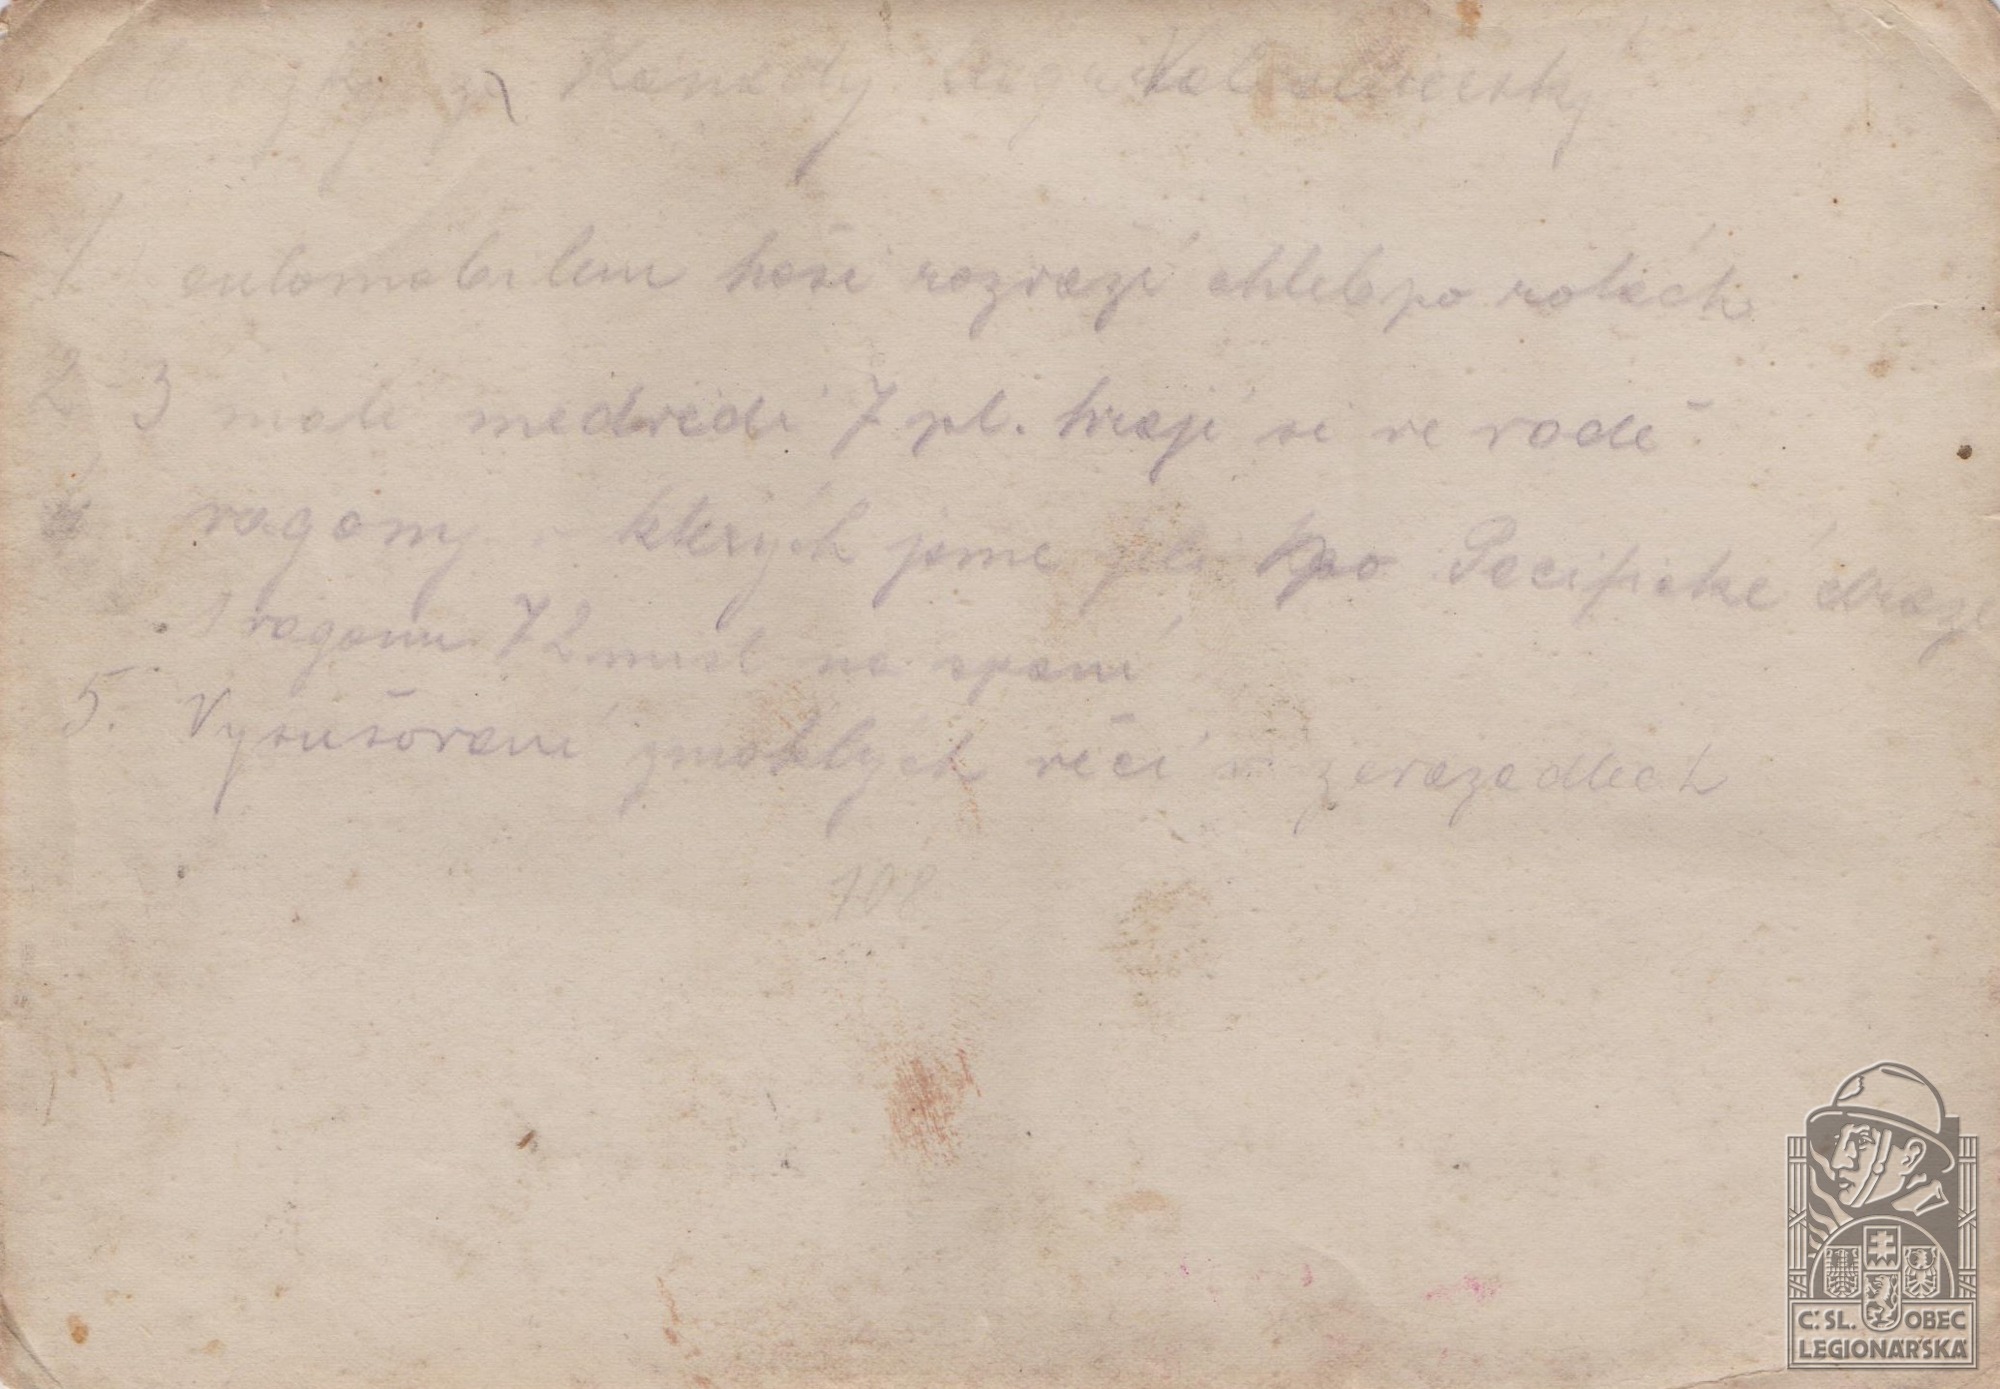 z Kanady
1 automobilem hoši rozváží chleb po rotách
2 3 malí medvědi 7 pl. hrají si ve vodě
4 vagony v kterých jsme jeli po Pacifické dráze
1 vagonu 72 míst na spaní
5. Vysušování zmoklých věcí v zavazadlech
108
Č.SL. OBEC
LEGIONÁŘSKÁ